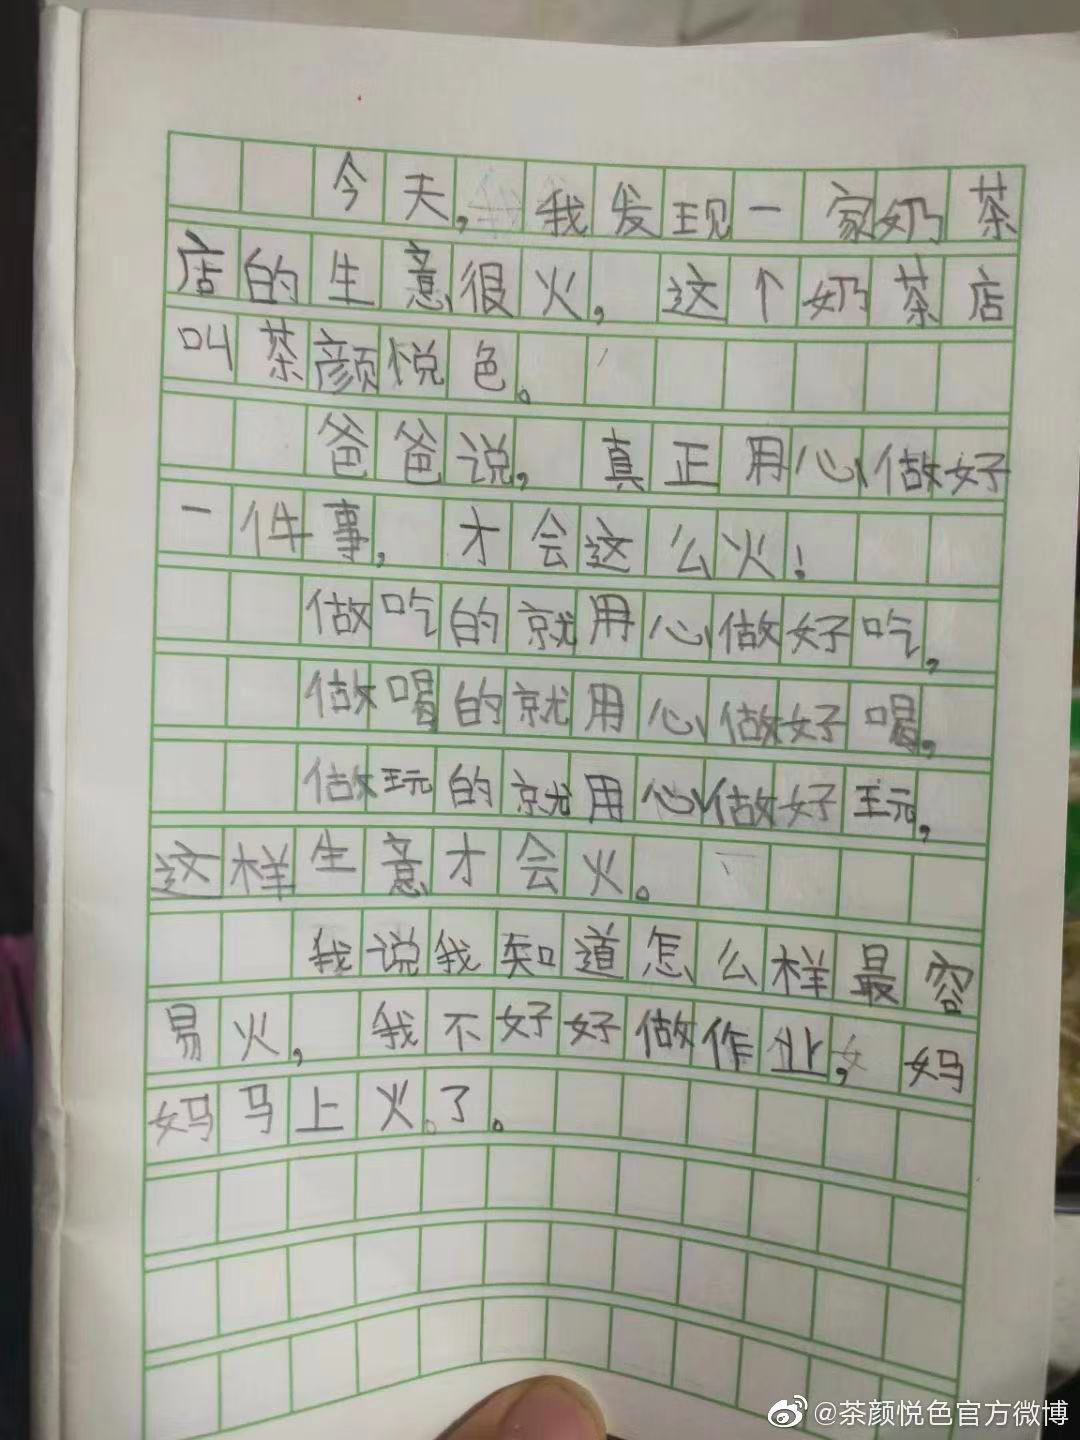 今天,我发现一家奶茶
店的生意很火,这个奶茶店
叫茶颜悦色。
爸爸说,真正用心做好
一件事,才会这么火!
做吃的就用心做好吃,
做喝的就用心做好喝,
做玩的就用心做好玩,
这样生意才会火。
我说我知道怎么样最容
易火,我不好好做作业,妈
妈马上火了。
@茶颜悦色官方微博